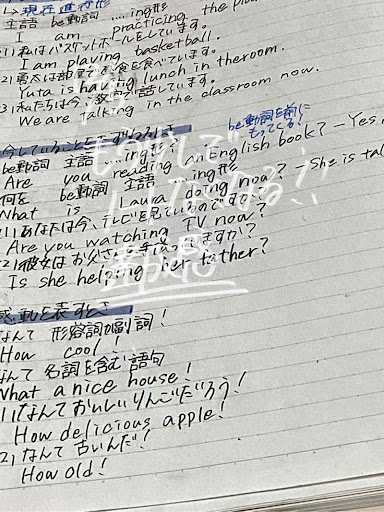 現在進行形
主語 be動詞 ……ing形
I am practicing the
(1) 私はバスケットボールをしています。
I am playing basketball.
(2) 勇太は部屋で昼食を食べています。
Yuta is having lunch in theroom.
(3) 私たちは今、教室で話しています。
We are talking in the classroom now.
be動詞を前に
もってくる!
be動詞 主語 …ing形?
Are you reading an English book? — Yes,
何を be動詞 主語 …ing形
What is Laura doing now? — She is tal
(1) あなたは今、テレビを見ているのですか?
Are you watching TV now?
(2) 彼女はお父さんを手伝っていますか?
Is she helping her father?
感動を表すとき
なんて 形容詞(副詞)!
How cool!
なんて 名詞を含む語句
What a nice house!
(1) なんておいしいりんごだろう!
How delicious apple!
(2) なんて古いんだ!
How old!